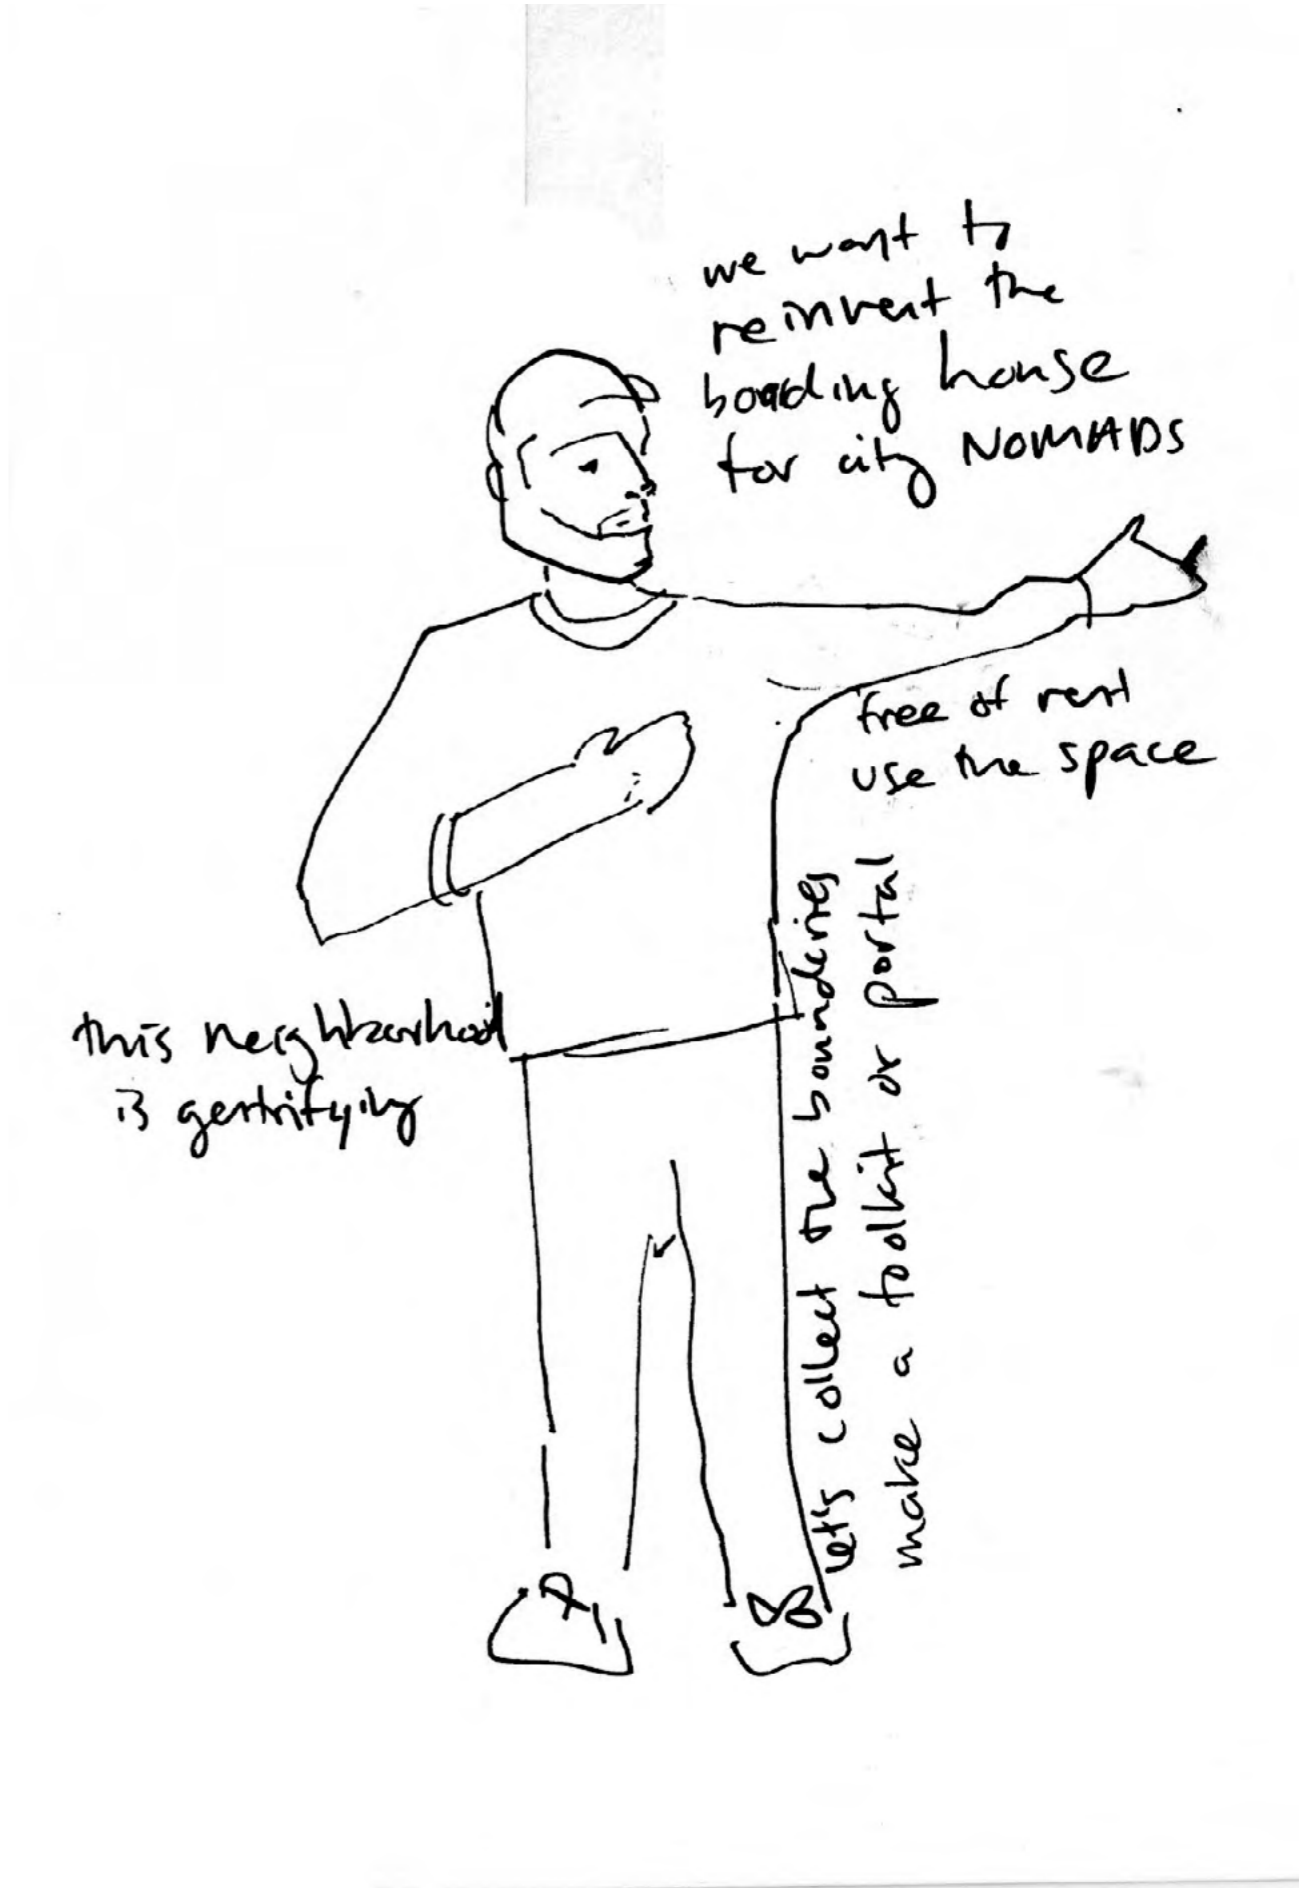 we want to
reinvent the
boarding house
for city NOMADS
free of rent
use the space
this neighborhood
is gentrifying
let's collect the boundaries
make a toolkit or portal